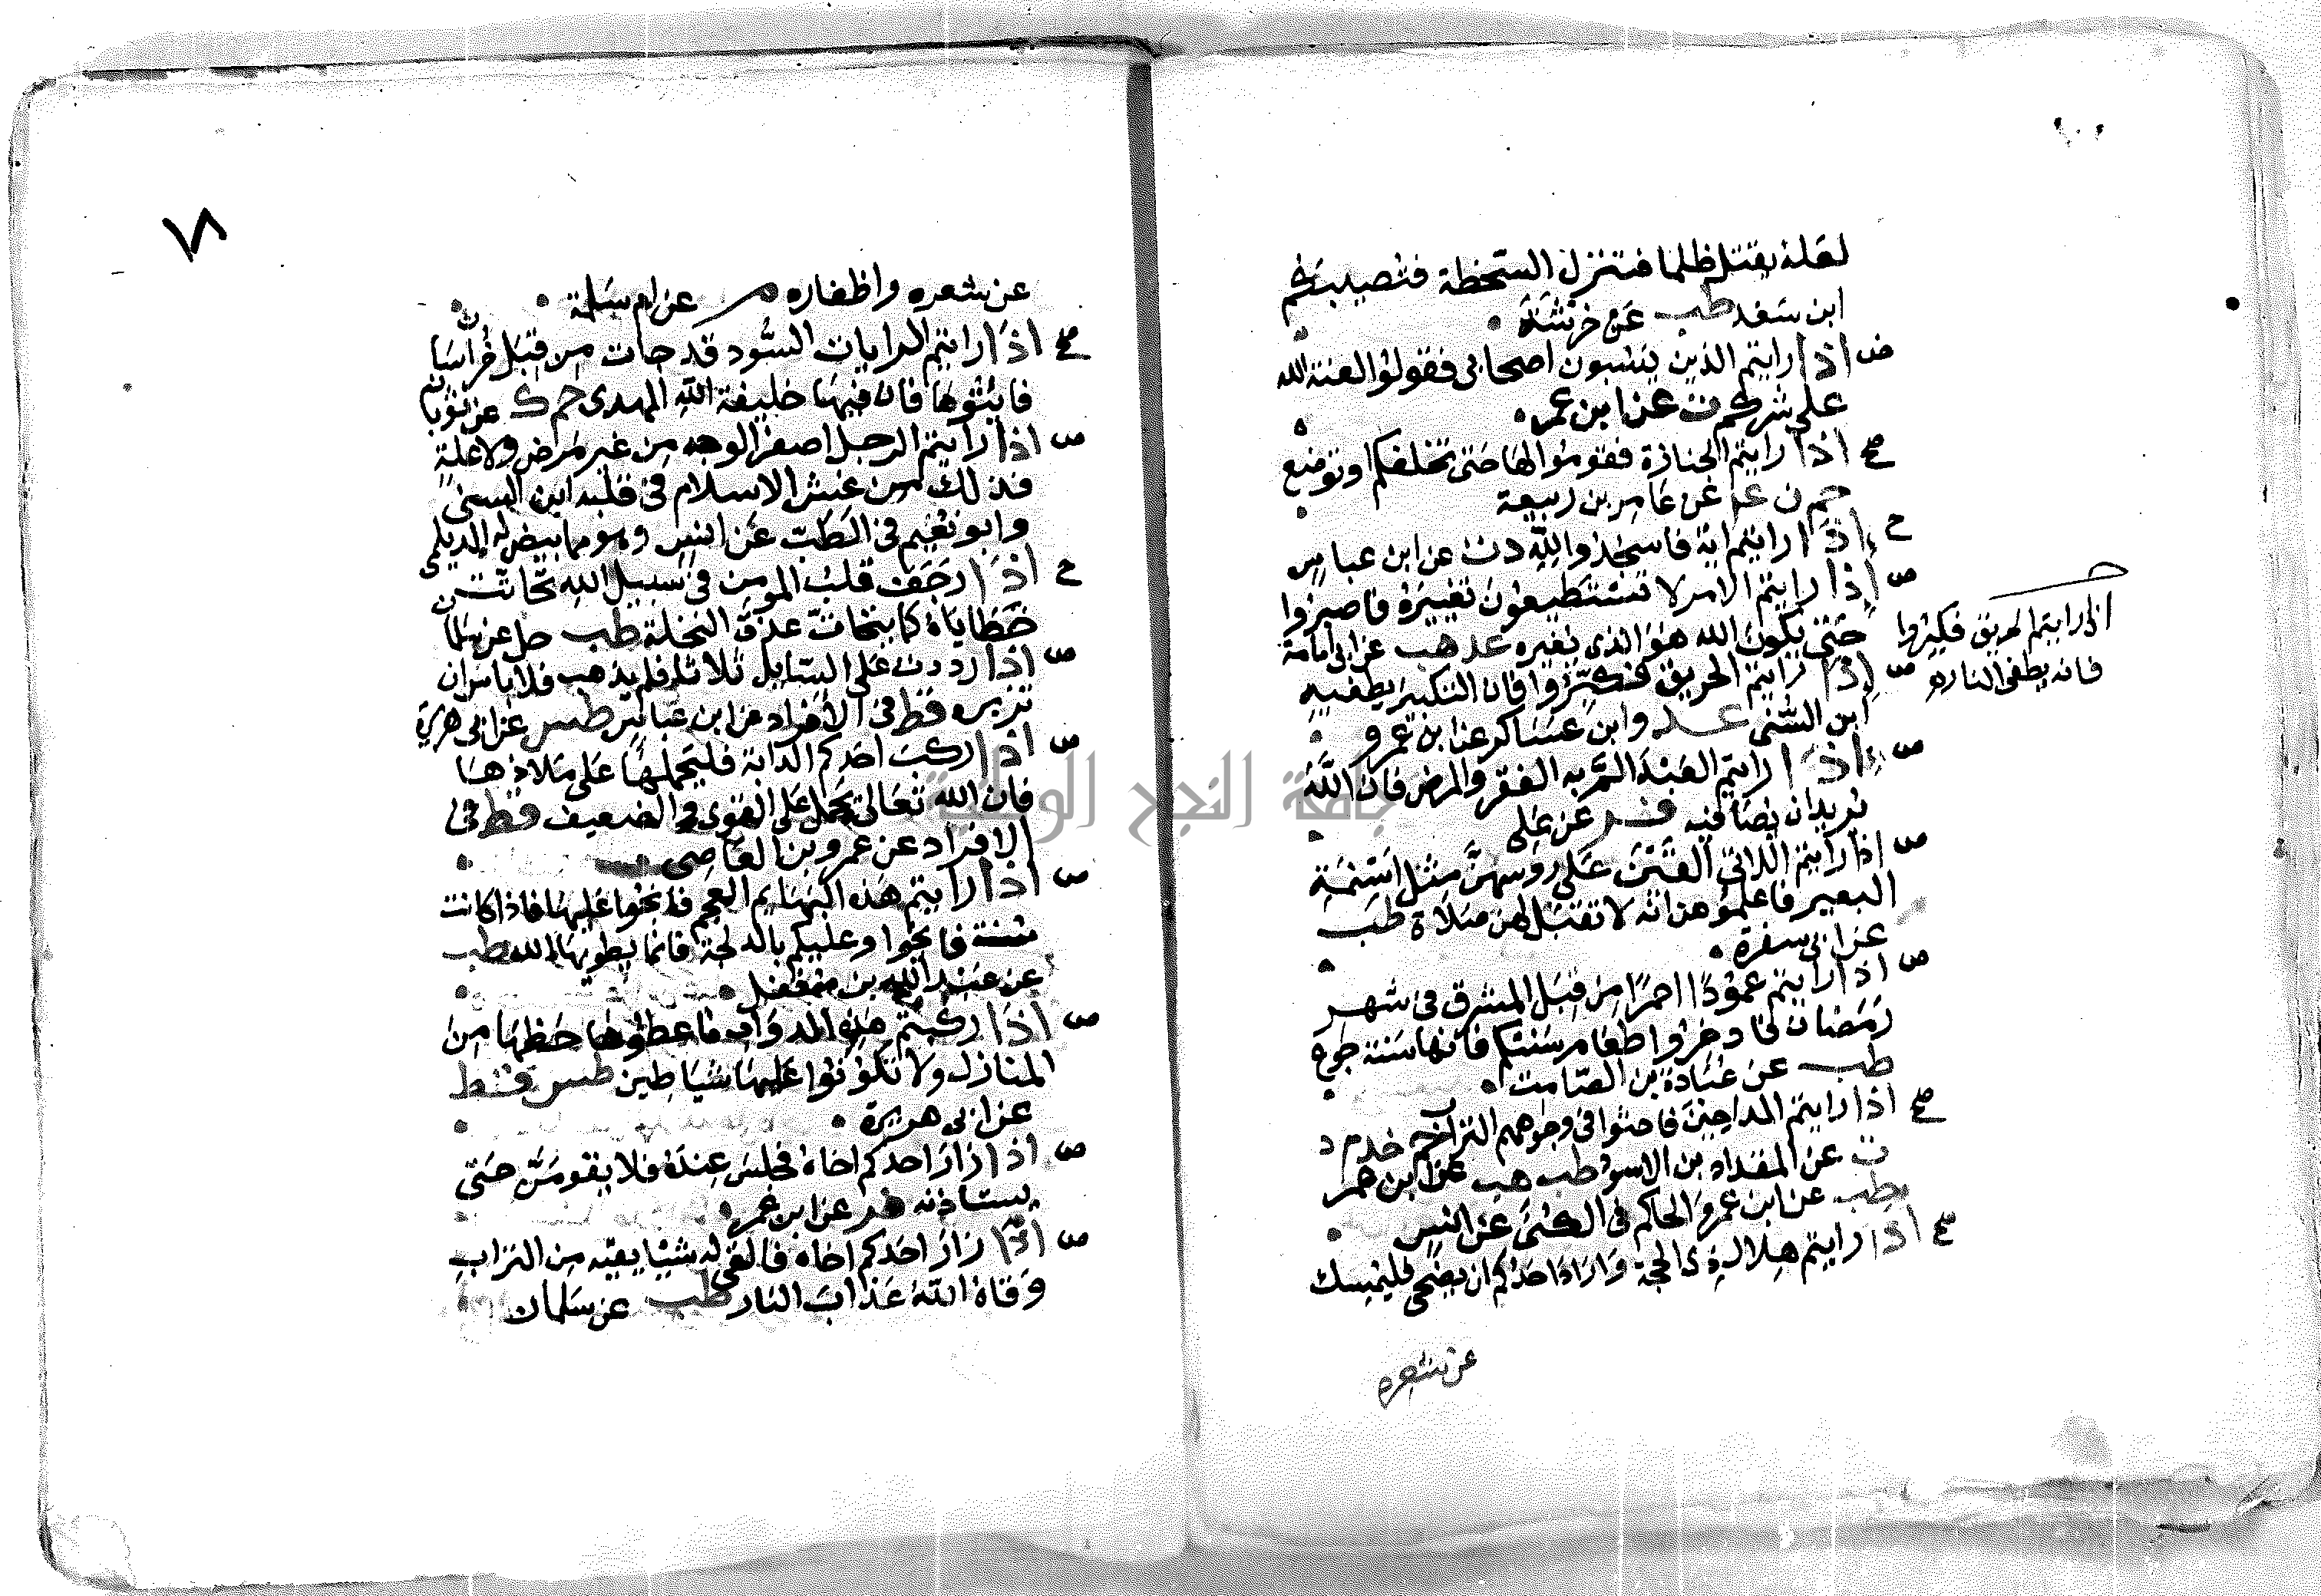 لعله يقتل ظلما فتنزل السخطة فتصيبكم
ابن سعد طب عن خرشة
ض اذا رايتم الذين يسبون اصحابي فقولوا لعنة الله
على شركم ت عن ابن عمر
صح اذا رايتم الجنازة فقوموا لها حتى تخلفكم او توضع
حم ن عن عامر بن ربيعة
ح اذا رايتم اية فاسجدوا لله د ت عن ابن عباس
ض اذا رايتم الامر لا تستطيعون تغييره فاصبروا
حتى يكون الله هو الذي يغيره عد هب عن ابي امامة
ض اذا رايتم الحريق فكبروا فان التكبير يطفيه
ابن السني عد وابن عساكر عن ابن عمرو
ض اذا رايتم العبد الم به الفقر والمرض فان الله
يريد ان يصافيه فر عن علي
ض اذا رايتم اللاتي القين على روسهن مثل اسنمة
البعير فاعلموهن انه لا تقبل لهن صلاة طب
عن ابي سفرة
ض اذا رايتم عمودا احمرا من قبل المشرق في شهر
رمضان فادخروا طعام سنتكم فانها سنة جوع
طب عن عبادة بن الصامت
صح اذا رايتم المداحين فاحثوا في وجوههم التراب حم خد م د
ت عن المقداد بن الاسود طب هب عن ابن عمر
طب عن ابن عمرو الحاكم في الكنى عن انس
صح اذا رايتم هلال ذي الحجة واراد احدكم ان يضحي فليمسك
عن شعره
اذا رايتم الحريق فكبروا
فانه يطفى النار
٧٨
عن شعره واظفاره م عن ام سلمة
صح اذا رايتم الرايات السود قد جات من قبل خراسان
فاتوها فان فيها خليفة الله المهدي حم ك عن ثوبان
ض اذا رايتم الرجل اصفر الوجه من غير مرض ولا علة
فذلك من غش الاسلام في قلبه ابن السني
وابو نعيم في الطب عن انس وهو مما بيض له الديلمي
ح اذا رجف قلب المومن في سبيل الله تحاتت
خطاياه كما يتحات عذق النخلة طب حل عن سلمان
ض اذا رددت على السايل ثلاثا فلم يذهب فلا باس ان
تزبره قط في الافراد عن ابن عباس طس عن ابي هريرة
ض اذا ركب احدكم الدابة فليحملها على ملاذها
فان الله تعالى يحمل على القوي والضعيف قط في
الافراد عن عمرو بن العاصي
ض اذا رايتم هذه البهايم العجم فانجوا عليها فاذا كانت
سنة فانجوا وعليكم بالدلجة فانما يطويها الله طب
عن عبد الله بن مغفل
ض اذا ركبتم هذه الدواب فاعطوها حظها من
المنازل ولا تكونوا عليها شياطين طس قط
عن ابي هريرة
ض اذا زار احدكم اخاه فجلس عنده فلا يقومن حتى
يستاذنه فر عن ابن عمر
ض اذا زار احدكم اخاه فالقى له شيا يقيه من التراب
وقاه الله عذاب النار طب عن سلمان
جامعة النجاح الوطنية